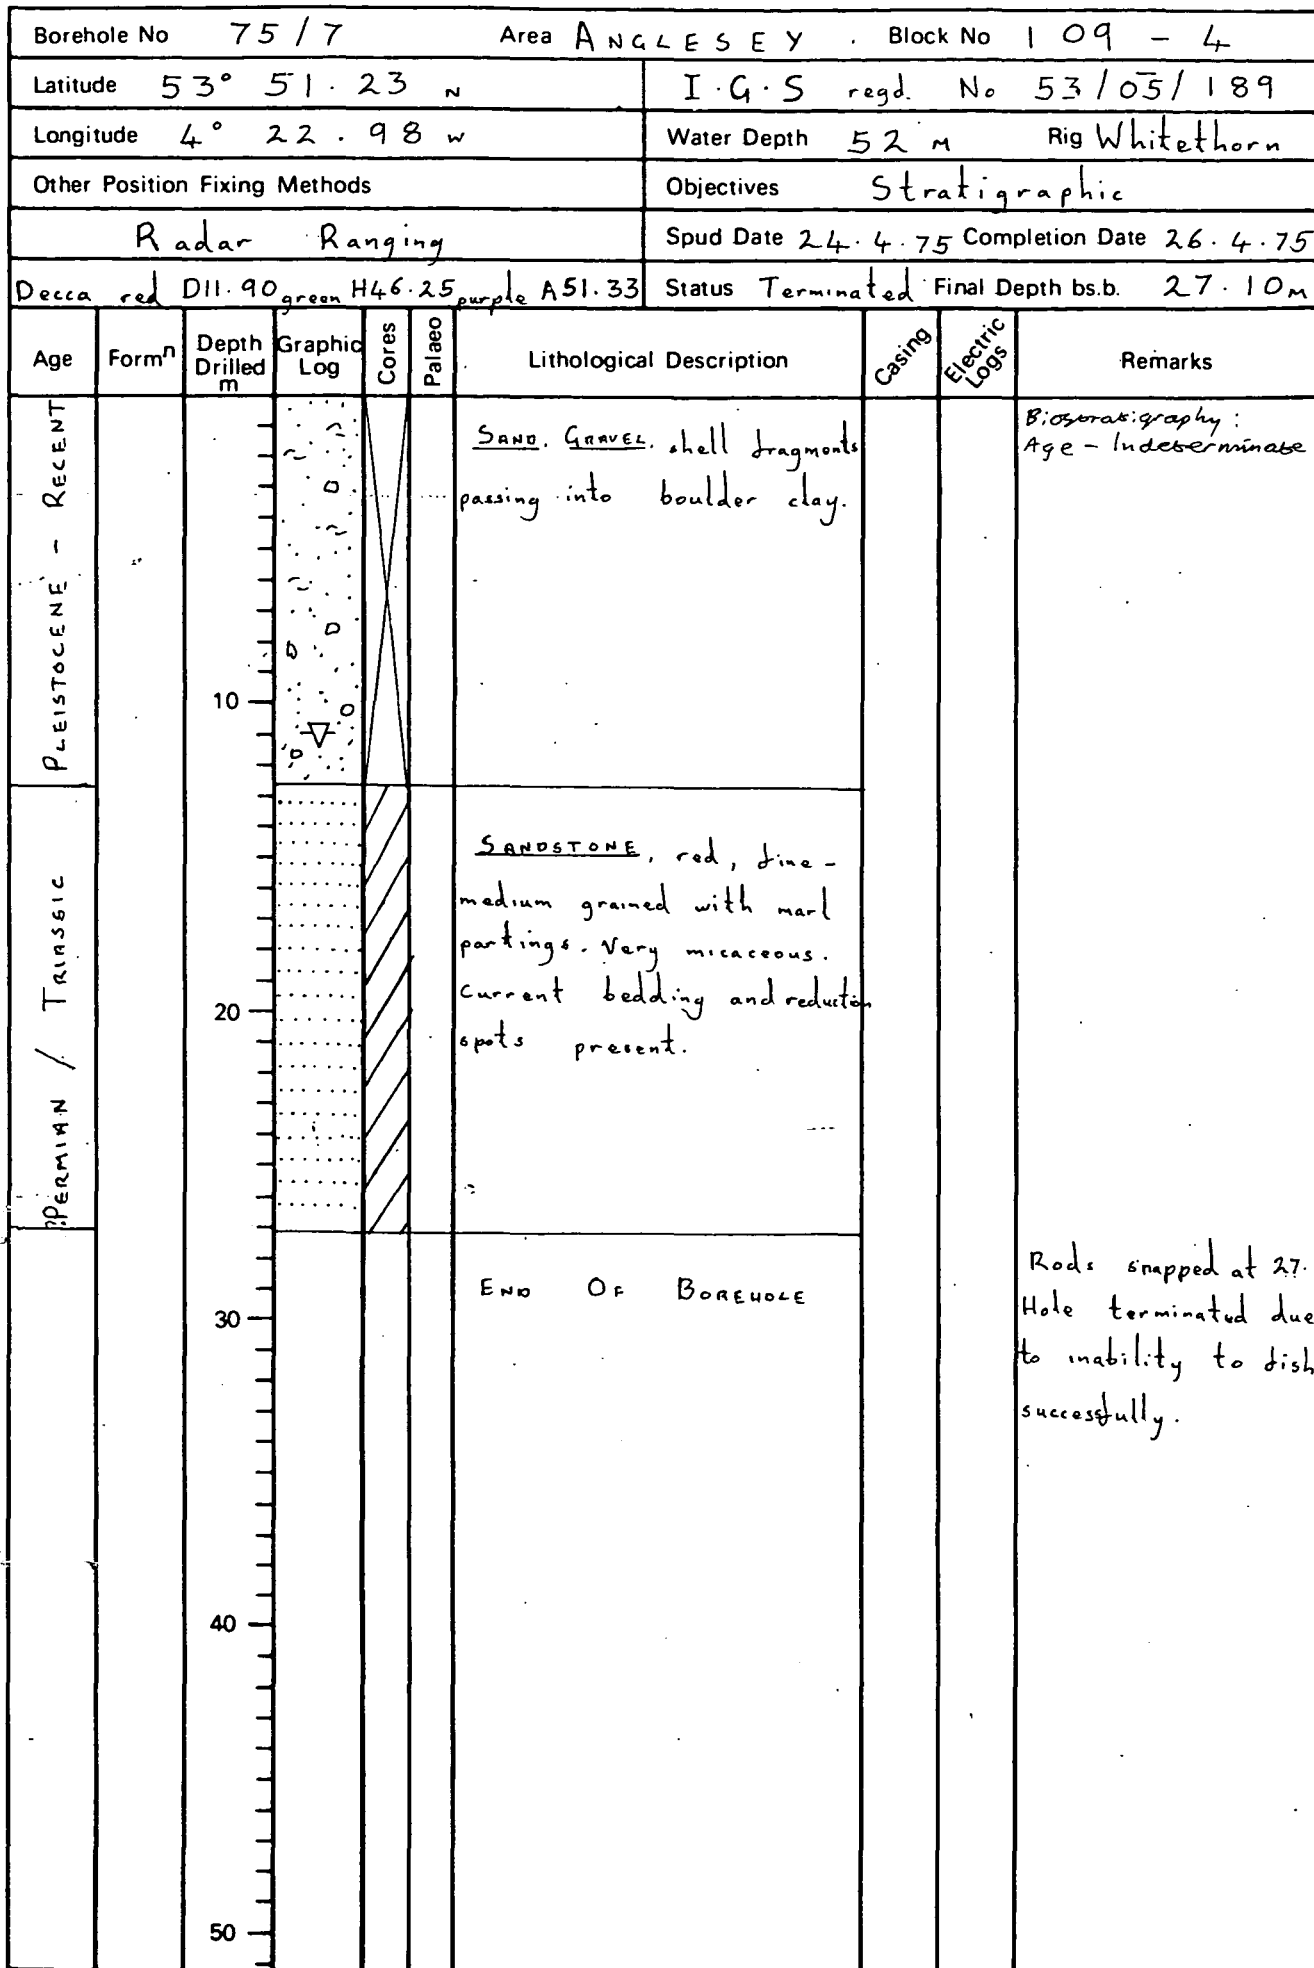 Borehole No 75/7 Area ANGLESEY . Block No 109 - 4
Latitude 53° 51.23 N
I.G.S regd. No 53/05/189
Longitude 4° 22.98 W
Water Depth 52 M Rig Whitethorn
Other Position Fixing Methods
Objectives Stratigraphic
Radar Ranging
Spud Date 24.4.75 Completion Date 26.4.75
Decca red D11.90 green H46.25 purple A51.33
Status Terminated Final Depth bs.b. 27.10M
Age
Formⁿ
Depth Drilled m
Graphic Log
Cores
Palaeo
Lithological Description
Casing
Electric Logs
Remarks
PLEISTOCENE - RECENT
SAND. GRAVEL. shell fragments
passing into boulder clay.
Biostratigraphy:
Age - Indeterminate
10
?PERMIAN / TRIASSIC
SANDSTONE, red, fine -
medium grained with marl
partings. Very micaceous.
Current bedding and reduction
spots present.
20
END OF BOREHOLE
Rods snapped at 27.
Hole terminated due
to inability to fish
successfully.
30
40
50